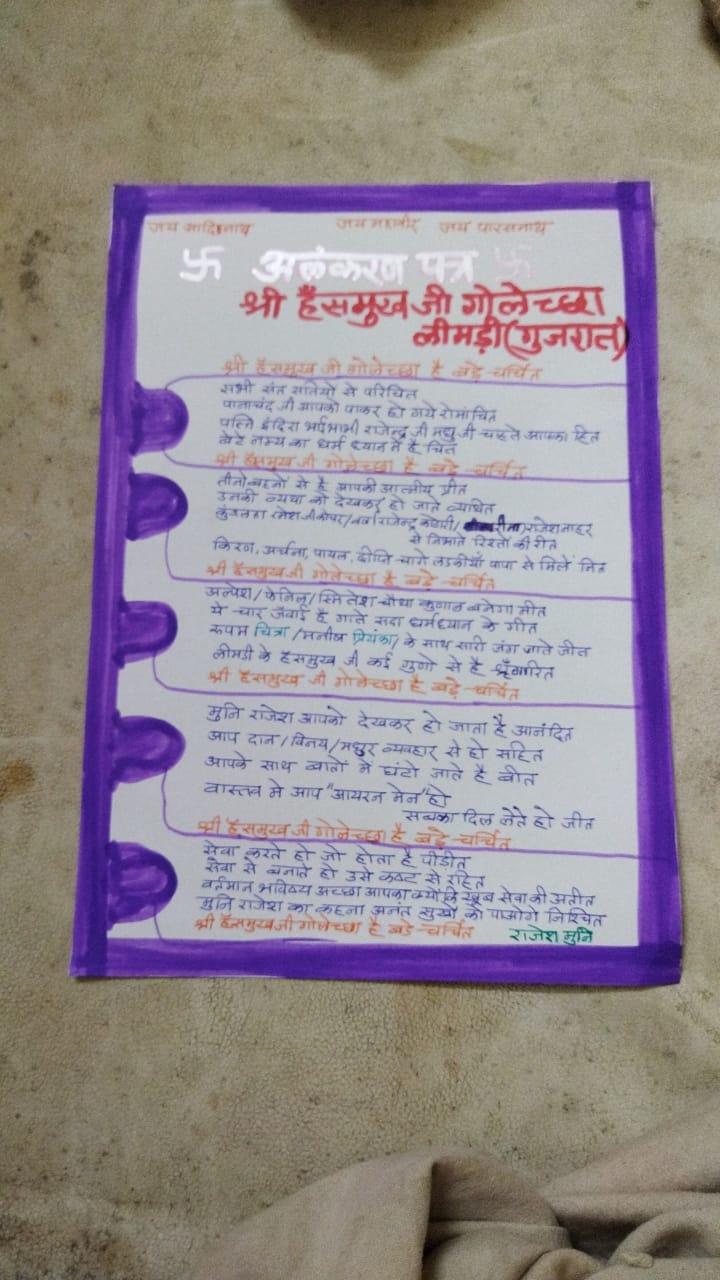 जय आदिनाथ जय महावीर जय पारसनाथ
卐 अलंकरण पत्र 卐
श्री हँसमुख जी गोलेच्छा
लीमड़ी (गुजरात)
श्री हँसमुख जी गोलेच्छा है बड़े चर्चित
सभी संत सतियों से परिचित
पानाचंद जी आपको पाकर हो गये रोमांचित
पत्नि इंदिरा भाई भाभी राजेन्द्र जी मधु जी चाहते आपका हित
बेटे नम्य का धर्म ध्यान में है चित
श्री हँसमुख जी गोलेच्छा है बड़े चर्चित
तीनो बहनों से है आपकी आत्मीय प्रीत
उनकी व्यथा को देखकर हो जाते व्यथित
राजेन्द्र कोठारी/ राजेश नाहर
से निभाते रिश्तों की रीत
किरण, अर्चना, पायल, दीप्ति चारो लडकीयाँ पापा से मिलें नित
श्री हँसमुख जी गोलेच्छा है बड़े चर्चित
अल्पेश/फेनिल/स्मितेश चौथा कुणाल बनेगा मीत
ये चार जँवाई है गाते सदा धर्मध्यान के गीत
रूपम चित्रा/मनीष प्रियंका/के साथ सारी जंग जाते जीत
लीमडी के हँसमुख जी कई गुणो से है श्रृँगारित
श्री हँसमुख जी गोलेच्छा है बड़े चर्चित
मुनि राजेश आपको देखकर हो जाता है आनंदित
आप दान/विनय/मधुर व्यवहार से हो सहित
आपके साथ बातों में घंटो जाते है बीत
वास्तव मे आप "आयरन मेन" हो
सबका दिल लेते हो जीत
श्री हँसमुख जी गोलेच्छा है बड़े चर्चित
सेवा करते हो जो होता है पीडीत
सेवा से बनाते हो उसे कष्ट से रहित
वर्तमान भविष्य अच्छा आपका क्योंकि खूब सेवा की अतीत
मुनि राजेश का कहना अनंत सुखों को पाओगे निश्चित
श्री हँसमुख जी गोलेच्छा है बड़े चर्चित
राजेश मुनि